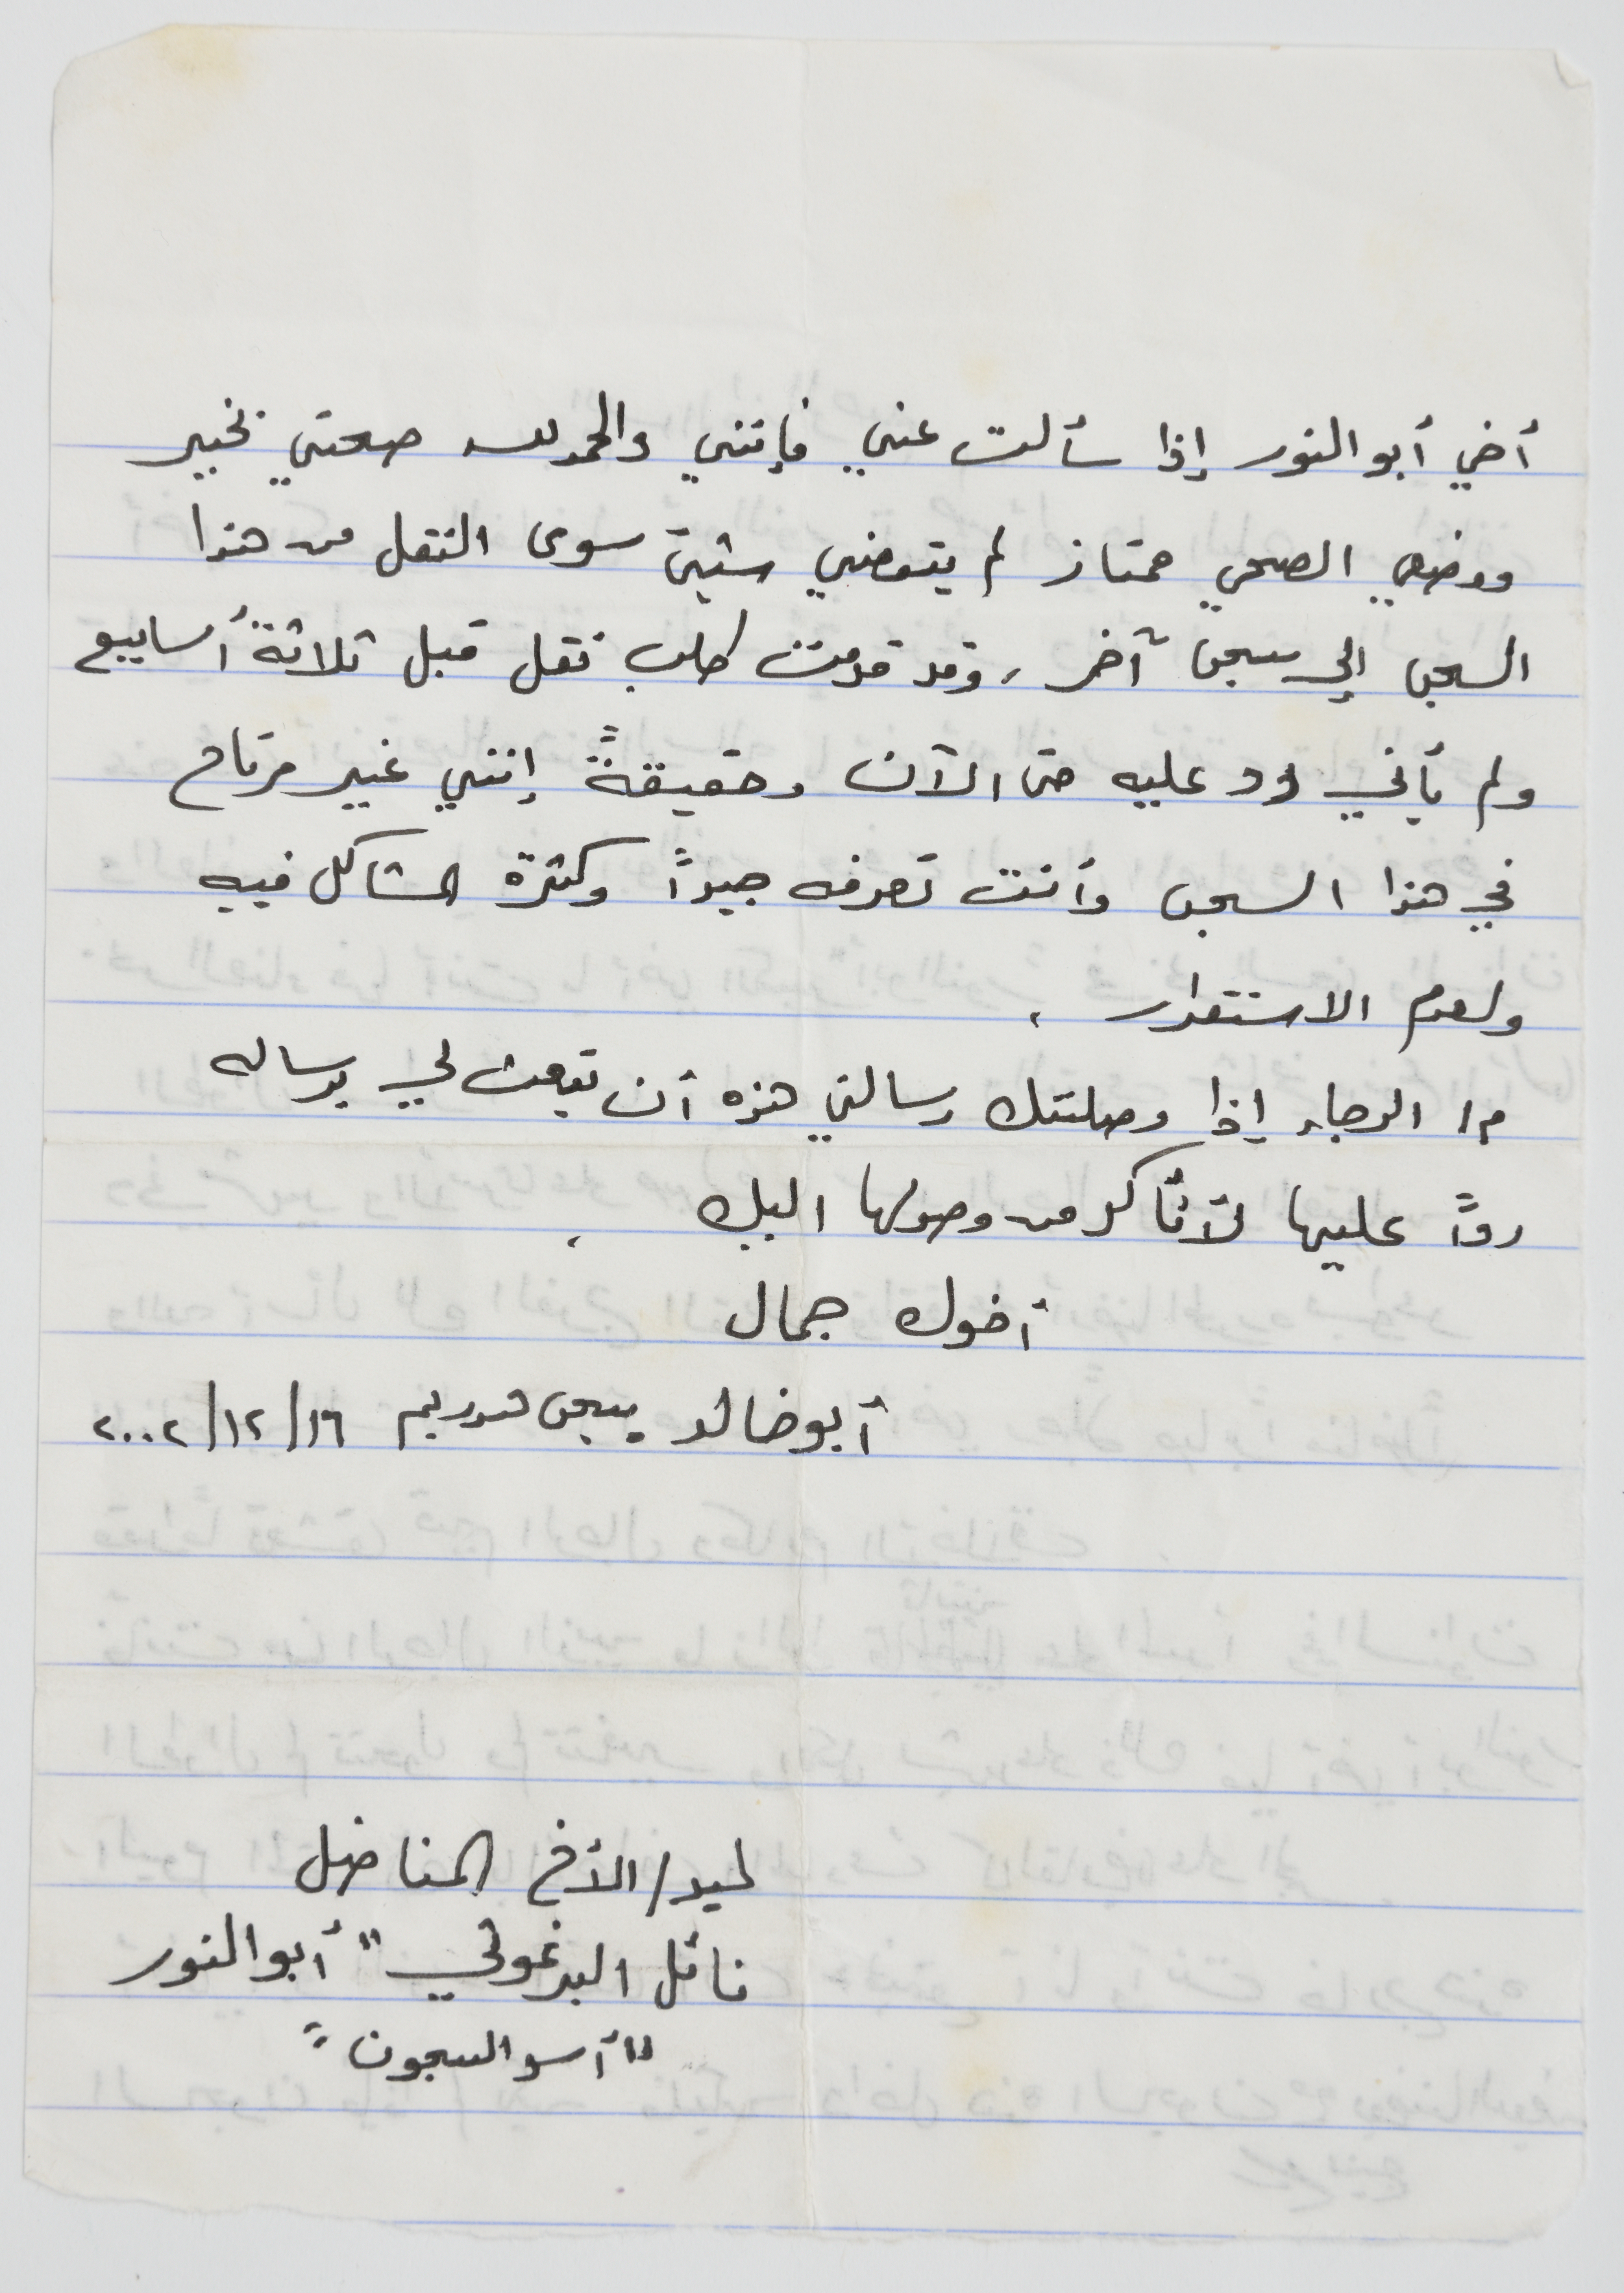 أخي أبو النور إذا سألت عني فإنني والحمد لله صحتي بخير
ووضعي الصحي ممتاز لم يتعبني شيئ سوى التنقل من هذا
السجن إلى سجن آخر، وقد قدمت طلب نقل قبل ثلاثة أسابيع
ولم يأتي رد عليه حتى الآن وحقيقةً إنني غير مرتاح
في هذا السجن وأنت تعرفه جيداً وكثرة المشاكل فيه
ولعدم الاستقرار.
م/ الرجاء إذا وصلتك رسالتي هذه أن تبعث لي برساله
رداً عليها لأتأكد من وصولها اليك.
أخوك جمال
أبو خالد سجن هداريم ١٦/١٢/٢٠٠٢
ليد/ الأخ المناضل
نائل البرغوثي "أبو النور
"أسد السجون"